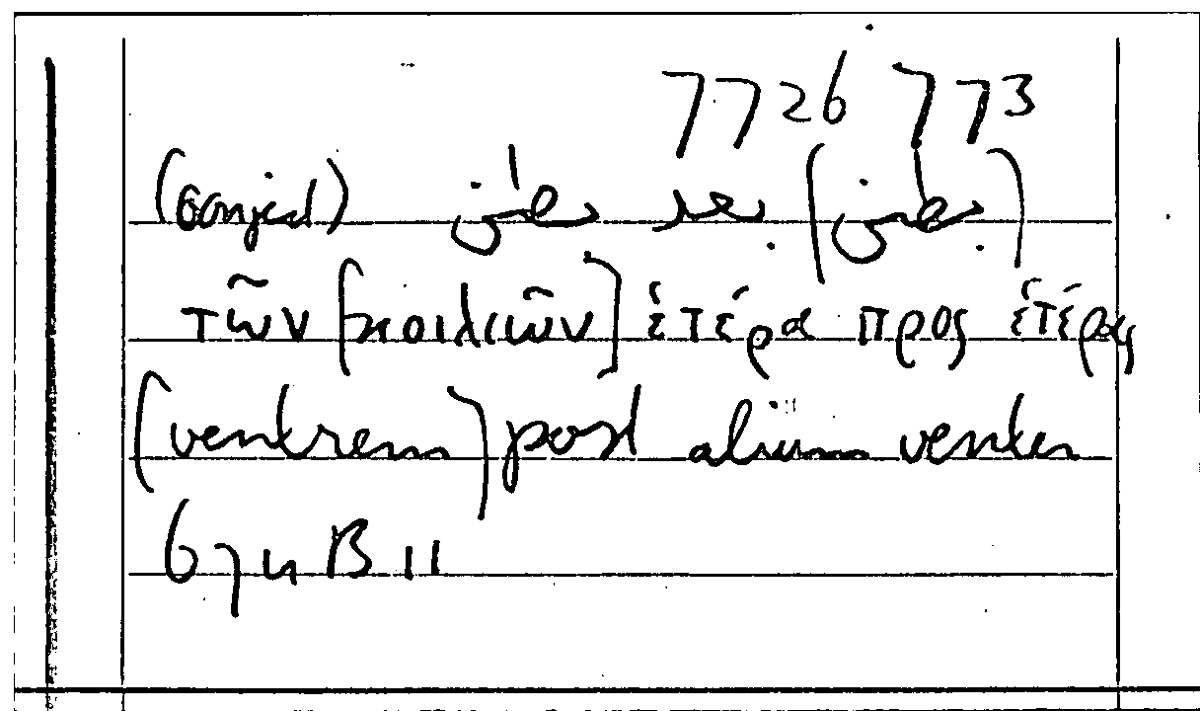 7726 773
(conject) بطن بعد (بطن)
τῶν [κοιλιῶν] ἑτέρα προς ἑτέρας
(ventrem) post alium venter
674 B 11